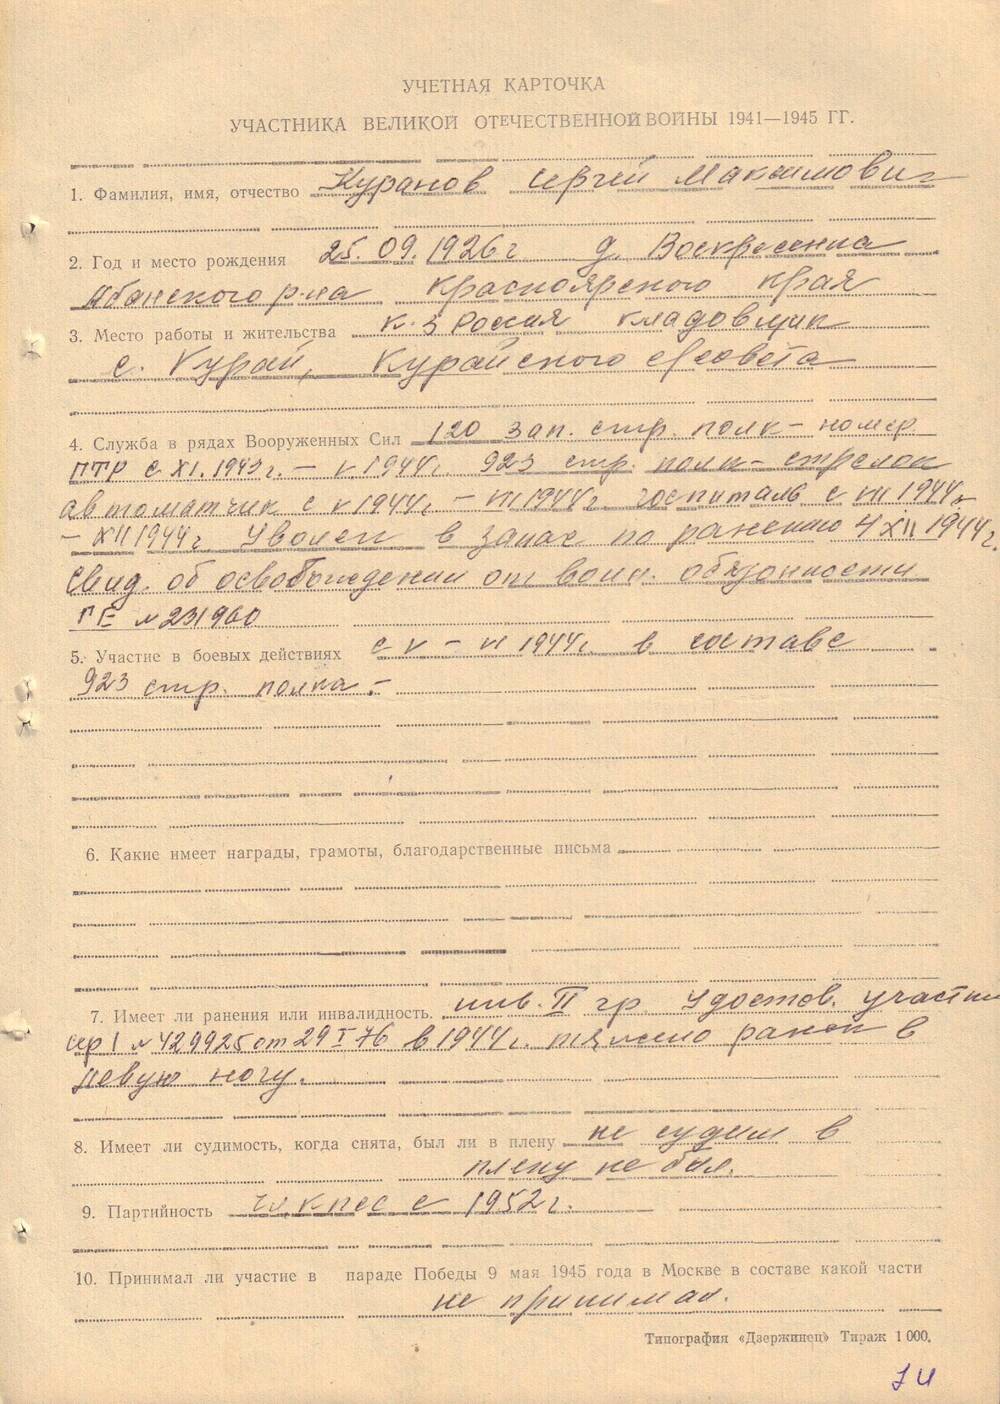 УЧЕТНАЯ КАРТОЧКА
УЧАСТНИКА ВЕЛИКОЙ ОТЕЧЕСТВЕННОЙ ВОЙНЫ 1941—1945 ГГ.
1. Фамилия, имя, отчество Куранов Сергей Максимович
2. Год и место рождения 25.09.1926 г д. Воскресенка
Абанского р-на Красноярского края
3. Место работы и жительства к-з Россия кладовщик
с. Курай, Курайского с/совета
4. Служба в рядах Вооруженных Сил 120 зап. стр. полк - номер
ПТР с XI.1943 г. - V.1944г. 923 стр. полк - стрелок
автоматчик с V 1944г. - VII 1944г. госпиталь с VII 1944г
- XII 1944г Уволен в запас по ранению 4 XII 1944г.
Свид. об освобождении от воин. обязанности
ГЕ № 231960
5. Участие в боевых действиях с V - VI 1944г. в составе
923 стр. полка. -
6. Какие имеет награды, грамоты, благодарственные письма
7. Имеет ли ранения или инвалидность. инв. II гр. Удостов. участни
сер I № 429925 от 29 I 76 в 1944г. тяжело ранен в
левую ногу.
8. Имеет ли судимость, когда снята, был ли в плену не судим в
плену не был.
9. Партийность чл. КПСС с 1952 г.
10. Принимал ли участие в параде Победы 9 мая 1945 года в Москве в составе какой части
не принимал.
Типография «Дзержинец» Тираж 1 000.